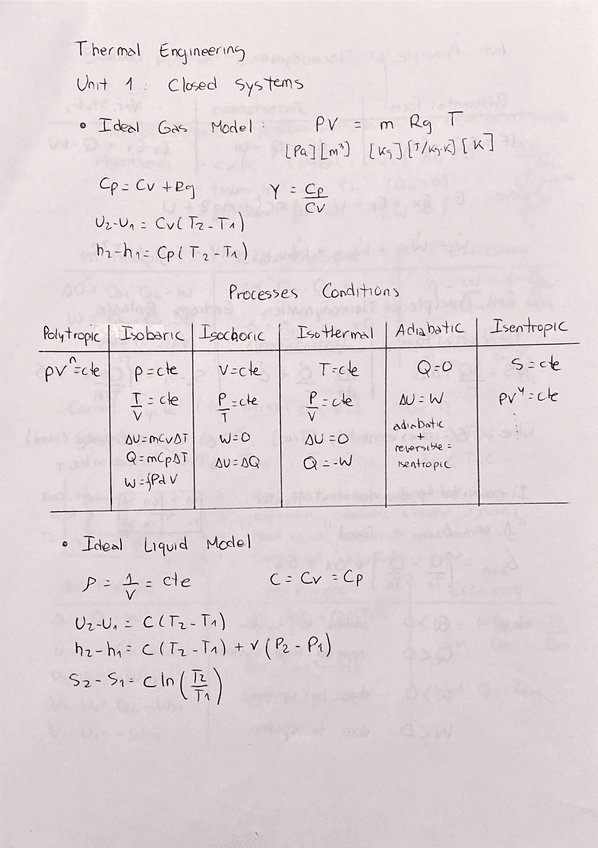 Thermal Engineering
Unit 1: Closed Systems
• Ideal Gas Model: PV = m Rg T
[Pa][m³] [kg][J/kg·K][K]
Cp = Cv + Rg γ = Cp/Cv
U2-U1 = Cv(T2-T1)
h2-h1 = Cp(T2-T1)
Processes Conditions
Polytropic Isobaric Isochoric Isothermal Adiabatic Isentropic
PVⁿ=cte P=cte V=cte T=cte Q=0 S=cte
T/V = cte P/T = cte P/V = cte ΔU=W PVᵞ=cte
ΔU=mCvΔT W=0 ΔU=0 adiabatic
+
Q=mCpΔT ΔU=ΔQ Q=-W reversible =
isentropic
W=∫PdV
• Ideal Liquid Model
ρ = 1/V = cte C = Cv = Cp
U2-U1 = C(T2-T1)
h2-h1 = C(T2-T1) + V(P2-P1)
S2-S1 = C ln(T2/T1)